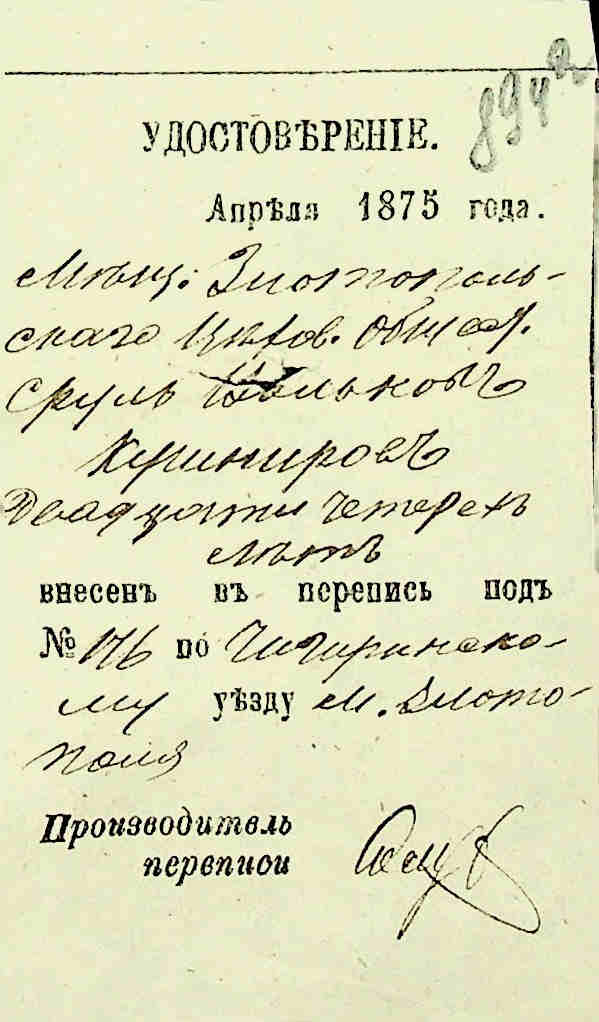 894
УДОСТОВѢРЕНІЕ.
Апрѣля 1875 года.
Мѣщ. Златополь-
скаго Цехов. общест.
Сруль
Кушнировъ
Двадцати Четерехъ
лѣтъ
внесенъ въ перепись подъ
№ 176 по Чигиринско-
му уѣзду м. Злато-
поля
Производитель
переписи